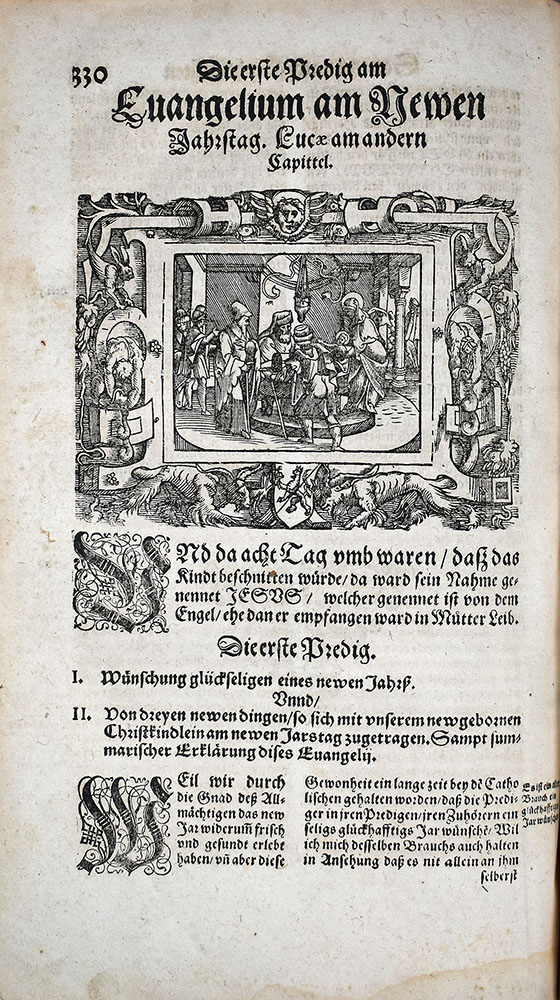 330
Die erste Predig am
Euangelium am Newen
Jahrstag. Lucæ am andern
Capittel.
VNd da acht Tag vmb waren / daß das
Kindt beschnitten würde / da ward sein Nahme ge-
nennet JESVS / welcher genennet ist von dem
Engel / ehe dan er empfangen ward in Mütter Leib.
Die erste Predig.
I. Wünschung glückseligen eines newen Jahrß.
Vnnd /
II. Von dreyen newen dingen / so sich mit vnserem newgebornen
Christkindlein am newen Jarstag zugetragen. Sampt sum-
marischer Erklärung dises Euangelij.
WEil wir durch
die Gnad deß All-
mächtigen das new
Jar widerum̃ frisch
vnd gesundt erlebt
haben / vñ aber diese
Gewonheit ein lange zeit bey dẽ Catho
lischen gehalten worden / daß die Predi-
ger in jren Predigen / jren Zuhörern ein
seligs glückhafftigs Jar wünschẽ / Wil
ich mich desselben Brauchs auch halten
in Ansehung daß es nit allein an jhm
selberst
Es ist ein
Brauch ein
glückhafftigs
Jar